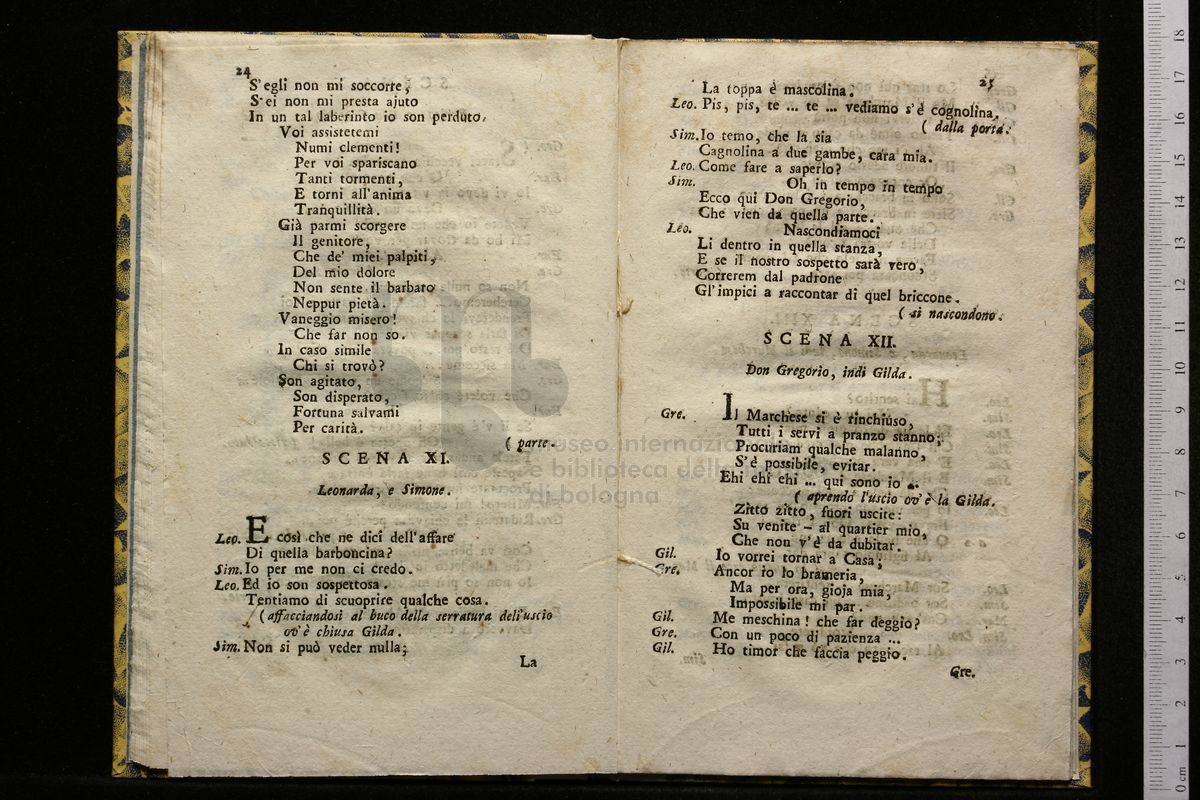 24
S'egli non mi soccorre,
S'ei non mi presta ajuto
In un tal laberinto io son perduto.
Voi assistetemi
Numi clementi!
Per voi spariscano
Tanti tormenti,
E torni all'anima
Tranquillità.
Già parmi scorgere
Il genitore,
Che de' miei palpiti,
Del mio dolore
Non sente il barbaro
Neppur pietà.
Vaneggio misero!
Che far non so.
In caso simile
Chi si trovò?
Son agitato,
Son disperato,
Fortuna salvami
Per carità.
( parte.
SCENA XI.
Leonarda, e Simone.
Leo. E così che ne dici dell'affare
Di quella barboncina?
Sim. Io per me non ci credo.
Leo. Ed io son sospettosa.
Tentiamo di scuoprire qualche cosa.
( affacciandosi al buco della serratura dell'uscio
ov'è chiusa Gilda.
Sim. Non si può veder nulla;
La
25
La toppa è mascolina.
Leo. Pis, pis, te ... te ... vediamo s'è cognolina.
( dalla porta.
Sim. Io temo, che la sia
Cagnolina a due gambe, cara mia.
Leo. Come fare a saperlo?
Sim. Oh in tempo in tempo
Ecco qui Don Gregorio,
Che vien da quella parte.
Leo. Nascondiamoci
Li dentro in quella stanza,
E se il nostro sospetto sarà vero,
Correrem dal padrone
Gl'impici a raccontar di quel briccone.
( si nascondono.
SCENA XII.
Don Gregorio, indi Gilda.
Gre. Il Marchese si è rinchiuso,
Tutti i servi a pranzo stanno;
Procuriam qualche malanno,
S'è possibile, evitar.
Ehi ehi chi ... qui sono io ..
( aprendo l'uscio ov'è la Gilda.
Zitto zitto, fuori uscite:
Su venite - al quartier mio,
Che non v'è da dubitar.
Gil. Io vorrei tornar a Casa;
Gre. Ancor io lo bramerìa,
Ma per ora, gioja mia,
Impossibile mi par.
Gil. Me meschina! che far deggio?
Gre. Con un poco di pazienza ...
Gil. Ho timor che faccia peggio.
Gre.
museo internazionale
e biblioteca della
di bologna
0 cm 1 2 3 4 5 6 7 8 9 10 11 12 13 14 15 16 17 18